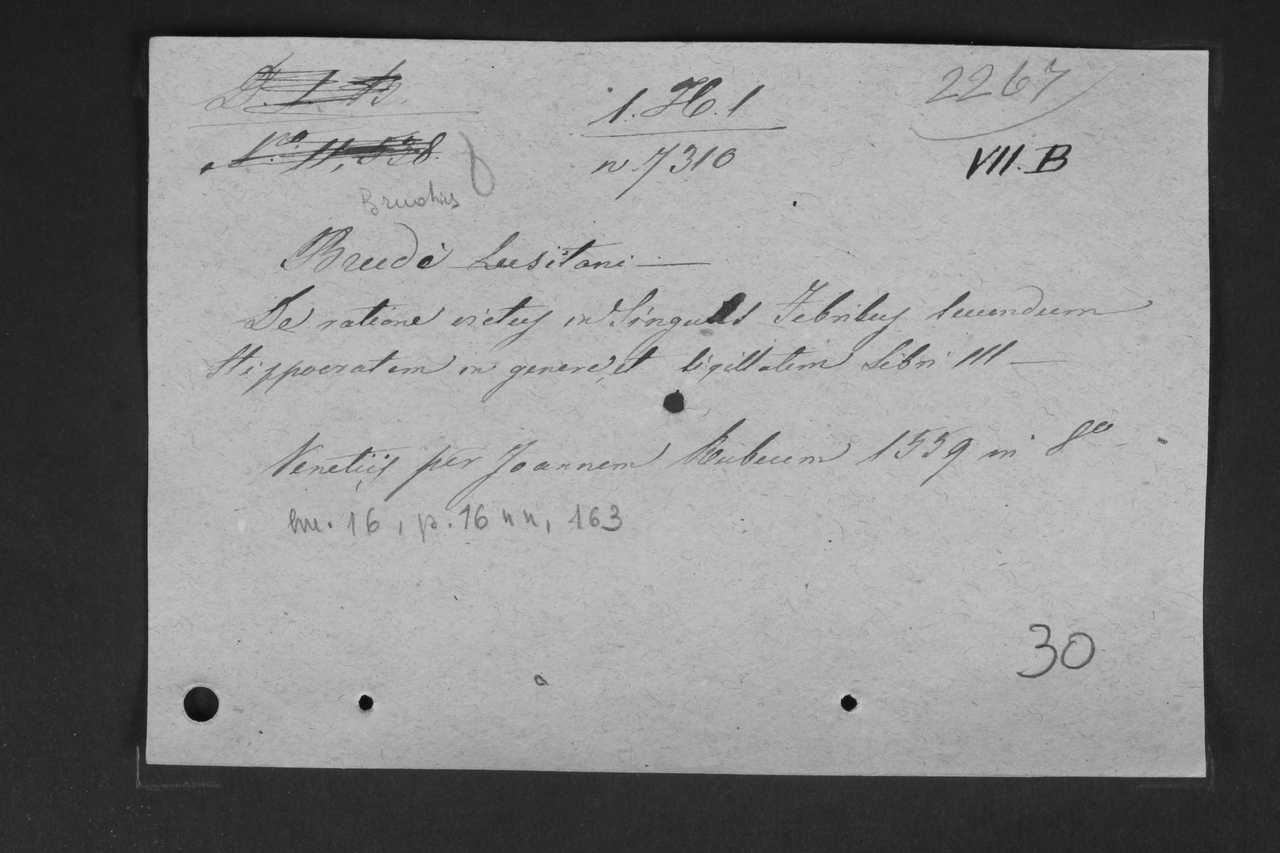 D. I. B.
1. H. 1
2267
N.ro 11,538.
n. 7310
VII. B
Brudus
Brudi Lusitani —
De ratione victus in Singulis Febribus secundum
Hippocratem in genere, et sigillatim Libri III —
Venetiis per Joannem Rubeum 1559 in 8º
lin. 16, p. 16 nn, 163
30